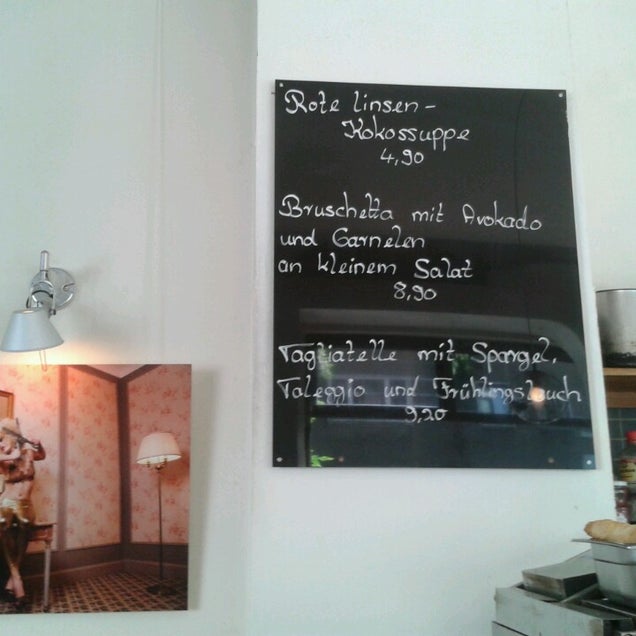 Rote Linsen -
Kokossuppe
4,90
Bruschetta mit Avokado
und Garnelen
an kleinem Salat
8,90
Tagliatelle mit Spargel,
Taleggio und Frühlingslauch
9,20